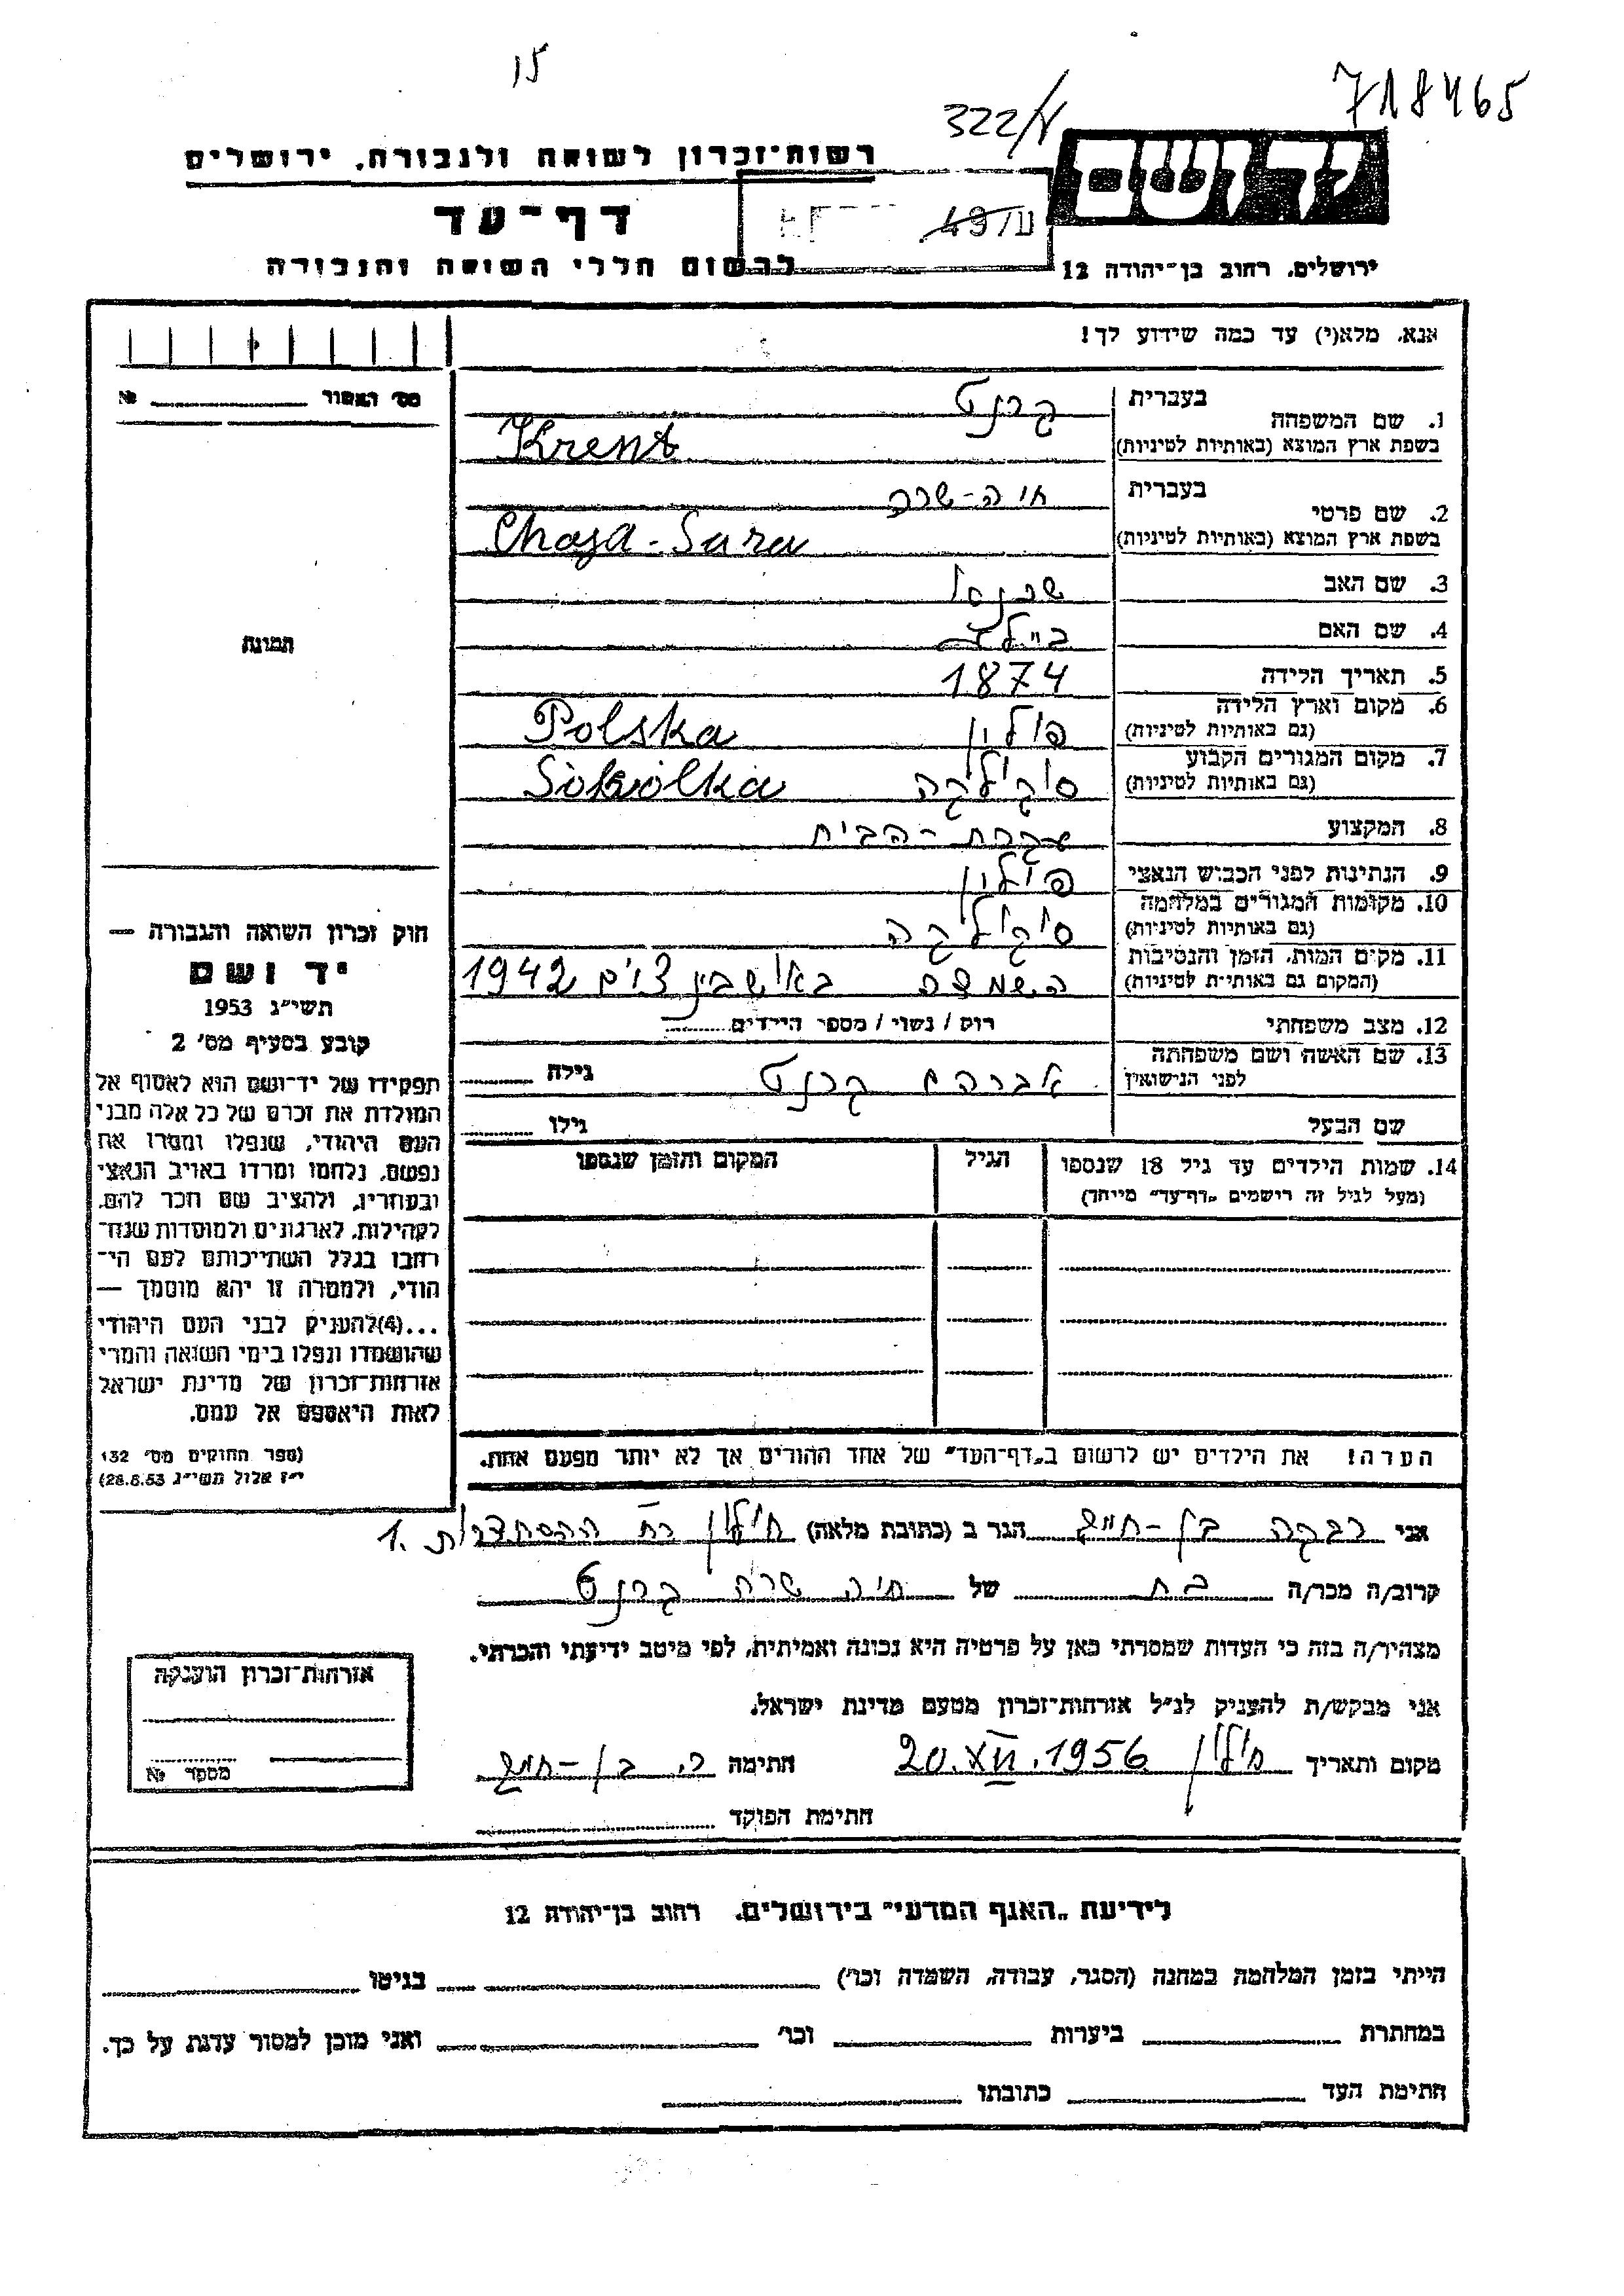 15
718465
322/
יד ושם
רשות־זכרון לשואה ולגבורה, ירושלים
49/
דף־עד
ירושלים, רחוב בן־יהודה 12
לרשום חללי השואה והגבורה
אנא, מלא(י) עד כמה שידוע לך!
מס' האשור №
1. שם המשפחה
בעברית קרנט
בשפת ארץ המוצא (באותיות לטיניות) Krent
2. שם פרטי
בעברית חיה-שרה
בשפת ארץ המוצא (באותיות לטיניות) Chaja-Sara
3. שם האב
4. שם האם ביילה
תמונה
5. תאריך הלידה 1874
6. מקום וארץ הלידה (גם באותיות לטיניות) פולין Polska
7. מקום המגורים הקבוע (גם באותיות לטיניות) סוקולקה Sokolka
8. המקצוע עקרת-הבית
9. הנתינות לפני הכבוש הנאצי פולין
10. מקומות המגורים במלחמה (גם באותיות לטיניות) סוקולקה
11. מקום המות, הזמן והנסיבות (המקום גם באותיות לטיניות) באושבינצים 1942
12. מצב משפחתי רוק / נשוי / מספר הילדים
13. שם האשה ושם משפחתה לפני הנישואין אברהם קרנט גילה
שם הבעל גילו
14. שמות הילדים עד גיל 18 שנספו
(מעל לגיל זה רישמים "דף־עד" מיוחד)
הגיל
המקום והזמן שנספו
הערה! את הילדים יש לרשום ב"דף־העד" של אחד ההורים אך לא יותר מפעם אחת.
חוק זכרון השואה והגבורה —
יד ושם
תשי"ג 1953
קובע בסעיף מס' 2
תפקידו של יד־ושם הוא לאסוף אל
המולדת את זכרם של כל אלה מבני
העם היהודי, שנפלו ומסרו את
נפשם, נלחמו ומרדו באויב הנאצי
ובעוזריו, ולהציב שם וזכר להם,
לקהילות, לארגונים ולמוסדות שנח־
רבו בגלל השתייכותם לעם הי־
הודי, ולמטרה זו יהא מוסמך —
...(4)להעניק לבני העם היהודי
שהושמדו ונפלו בימי השואה והמרי
אזרחות־זכרון של מדינת ישראל
לאות היאספם אל עמם.
(ספר החוקים מס' 132
י"ז אלול תשי"ג 28.8.53)
אני רבקה בן-חיים הגר ב (כתובת מלאה) חולון רח ההסתדרות 1.
קרוב/ה מכר/ה בת של חיה שרה קרנט
מצהיר/ה בזה כי העדות שמסרתי כאן על פרטיה היא נכונה ואמיתית, לפי מיטב ידיעתי והכרתי.
אני מבקש/ת להעניק לנ"ל אזרחות־זכרון מטעם מדינת ישראל.
מקום ותאריך חולון 20.XII.1956 חתימה ר. בן-חיים
חתימת הפוקד
אזרחות־זכרון הוענקה
מספר №
לידיעת "האגף המדעי" בירושלים, רחוב בן־יהודה 12
הייתי בזמן המלחמה במחנה (הסגר, עבודה, השמדה וכו') בגיטו
במחתרת ביערות וכו' ואני מוכן למסור עדות על כך.
חתימת העד כתובתו